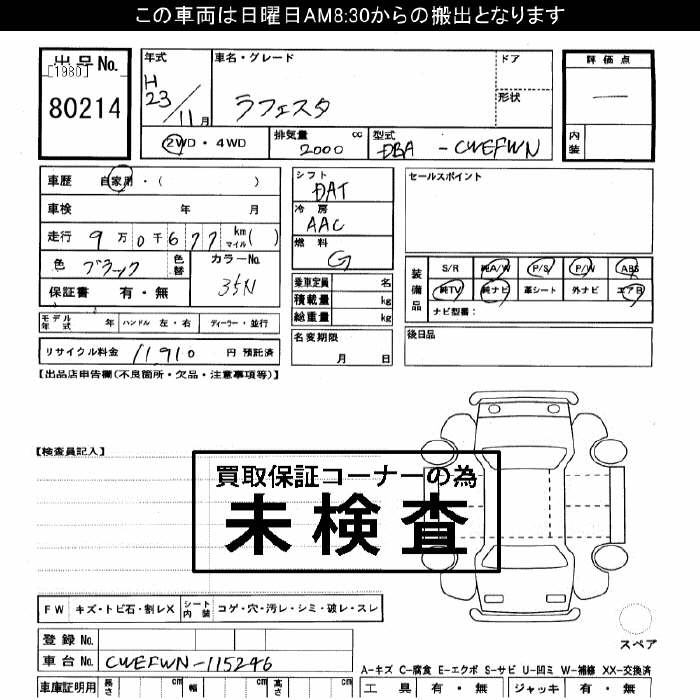 この車両は日曜日AM8:30からの搬出となります
出品No.
[1980]
80214
年式 車名・グレード ドア 評価点
H23/11月 ラフェスタ 形状 一
2WD・4WD 排気量 2000 cc 型式 DBA - CWEFWN 内装
車歴 自家用・( )
車検 年 月
走行 9万0千677 km マイル( )
色 ブラック 色替 カラーNo. 35N
保証書 有・無
シフト DAT
冷房 AAC
燃料 G
乗車定員 名
積載量 kg
総重量 kg
名変期限
月 日
セールスポイント
装備品 S/R 純A/W P/S P/W ABS
純TV 純ナビ 革シート 外ナビ エアB
ナビ型番:
後日品
モデル年式 年 ハンドル 左・右 ディーラー・並行
リサイクル料金 11910 円 預託済
【出品店申告欄(不良箇所・欠品・注意事項等)】
【検査員記入】
買取保証コーナーの為
未検査
FW キズ・トビ石・割レX シート内装 コゲ・穴・汚レ・シミ・破レ・スレ
スペア
登録No.
車台No. CWEFWN-115246
A-キズ C-腐食 E-エクボ S-サビ U-凹ミ W-補修 XX-交換済
車庫証明用 長さ cm 幅 cm 高さ cm 工具 有・無 ジャッキ 有・無